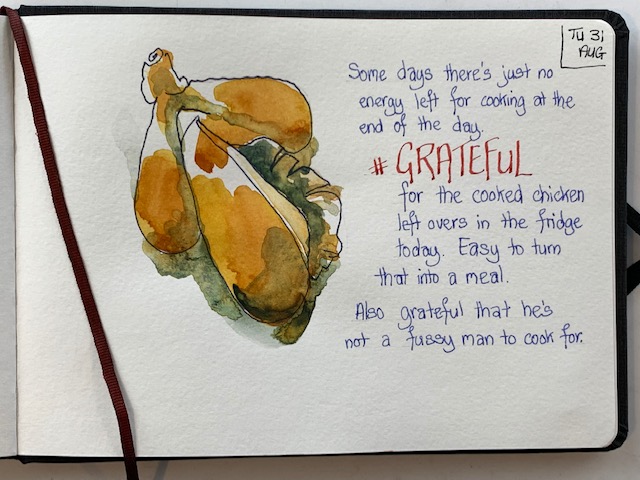 TU 31
AUG
Some days there's just no
energy left for cooking at the
end of the day.
# GRATEFUL
for the cooked chicken
left overs in the fridge
today. Easy to turn
that into a meal.
Also grateful that he's
not a fussy man to cook for.